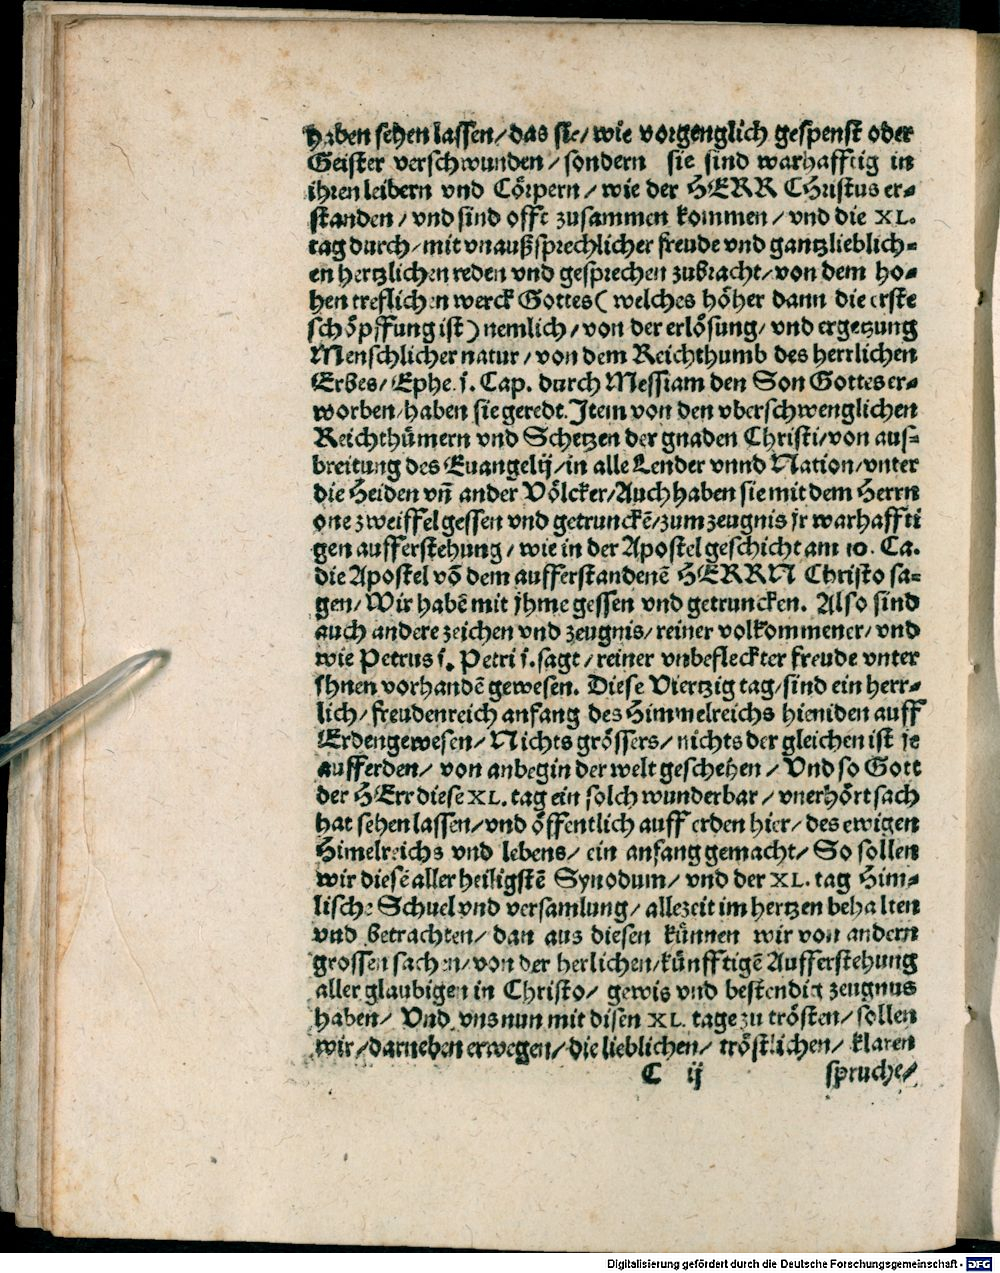 haben sehen lassen/ das sie/ wie vorgenglich gespenst oder
Geister verschwunden/ sondern sie sind warhafftig in
ihren leibern vnd Cörpern/ wie der HERR CHristus er⸗
standen/ vnd sind offt zusammen kommen/ vnd die XL.
tag durch/ mit vnaußsprechlicher freude vnd gantzlieblich⸗
en hertzlichen reden vnd gesprechen zubracht/ von dem ho⸗
hen treflichen werck Gottes ( welches höher dann die erste
schöpffung ist ) nemlich/ von der erlösung/ vnd ergetzung
Menschlicher natur/ von dem Reichthumb des herrlichen
Erbes/ Ephe. j. Cap. durch Messiam den Son Gottes er⸗
worben/ haben sie geredt. Item von den vberschwenglichen
Reichthümern vnd Schetzen der gnaden Christi/ von aus⸗
breitung des Euangelij/ in alle Lender vnnd Nation/ vnter
die Heiden vñ ander Völcker/ Auch haben sie mit dem Herrn
one zweiffel gessen vnd getrunckē/ zum zeugnis jr warhaffti
gen aufferstehung/ wie in der Apostel geschicht am 10. Ca.
die Apostel vō dem aufferstandenē HERRN Christo sa⸗
gen/ Wir habē mit jhme gessen vnd getruncken. Also sind
auch andere zeichen vnd zeugnis/ reiner volkommener/ vnd
wie Petrus j. Petri j. sagt/ reiner vnbefleckter freude vnter
jhnen vorhandē gewesen. Diese Viertzig tag/ sind ein herr⸗
lich/ freudenreich anfang des Himmelreichs hieniden auff
Erden gewesen/ Nichts grössers/ nichts der gleichen ist je
auff erden/ von anbegin der welt geschehen/ Vnd so Gott
der HErr diese XL. tag ein solch wunderbar/ vnerhört sach
hat sehen lassen/ vnd öffentlich auff erden hier/ des ewigen
Himelreichs vnd lebens/ ein anfang gemacht/ So sollen
wir diesē aller heiligstē Synodum/ vnd der XL. tag Him⸗
lische Schuel vnd versamlung/ allezeit im hertzen behalten
vnd betrachten/ dan aus diesen künnen wir von andern
grossen sachen/ von der herlichen/ künfftigē Aufferstehung
aller glaubigen in Christo/ gewis vnd bestendig zeugnus
haben/ Vnd vns nun mit disen XL. tage zu trösten/ sollen
wir/ darneben erwegen/ die lieblichen/ tröstlichen/ klaren
C ij spruche/
Digitalisierung gefördert durch die Deutsche Forschungsgemeinschaft - DFG